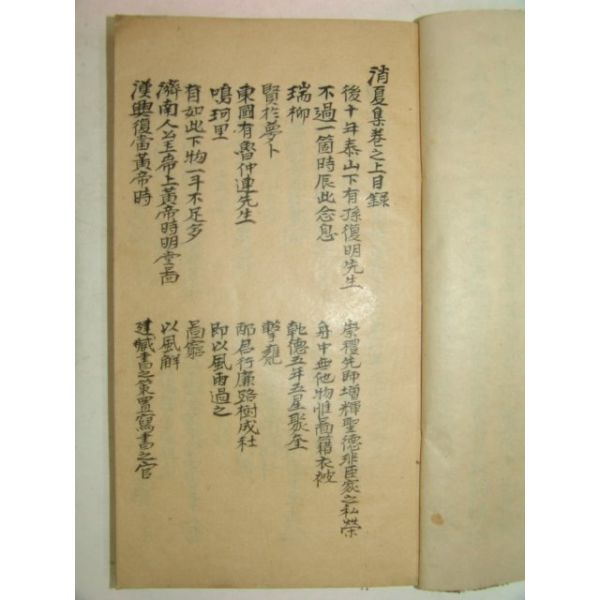 消夏集卷之上目錄
後十年泰山下有孫復明先生 崇禮先師增輝聖德非臣家之私榮
不過一箇時辰此念息 舟中無他物惟啚籍衣被
瑞柳 乾德五年五星聚奎
賢於夢卜 擊甕
東國有魯仲連先生 部居行廉路樹成社
鳴珂里 即以風雨過之
有如此下物一斗不足多 啚窮
濟南人公玉帝上黃帝時明堂啚 以風解
漢興復當黃帝時 建藏書之策置寫書之官